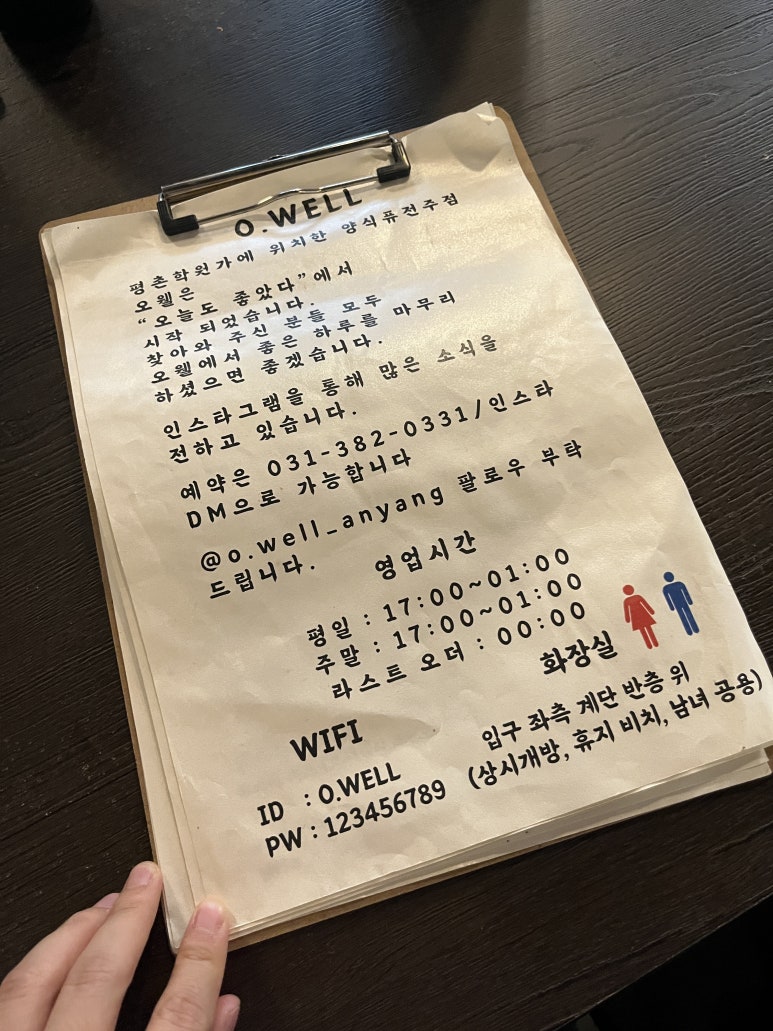 O.WELL
평촌학원가에 위치한 양식퓨전주점
오웰은
“오늘도 좋았다”에서
시작 되었습니다.
찾아와 주신 분들 모두
오웰에서 좋은 하루를 마무리
하셨으면 좋겠습니다.
인스타그램을 통해 많은 소식을
전하고 있습니다.
예약은 031-382-0331/인스타
DM으로 가능합니다
@o.well_anyang 팔로우 부탁
드립니다.
영업시간
평일 : 17:00~01:00
주말 : 17:00~01:00
라스트 오더 : 00:00
화장실
입구 좌측 계단 반층 위
(상시개방, 휴지 비치, 남녀 공용)
WIFI
ID : O.WELL
PW : 123456789